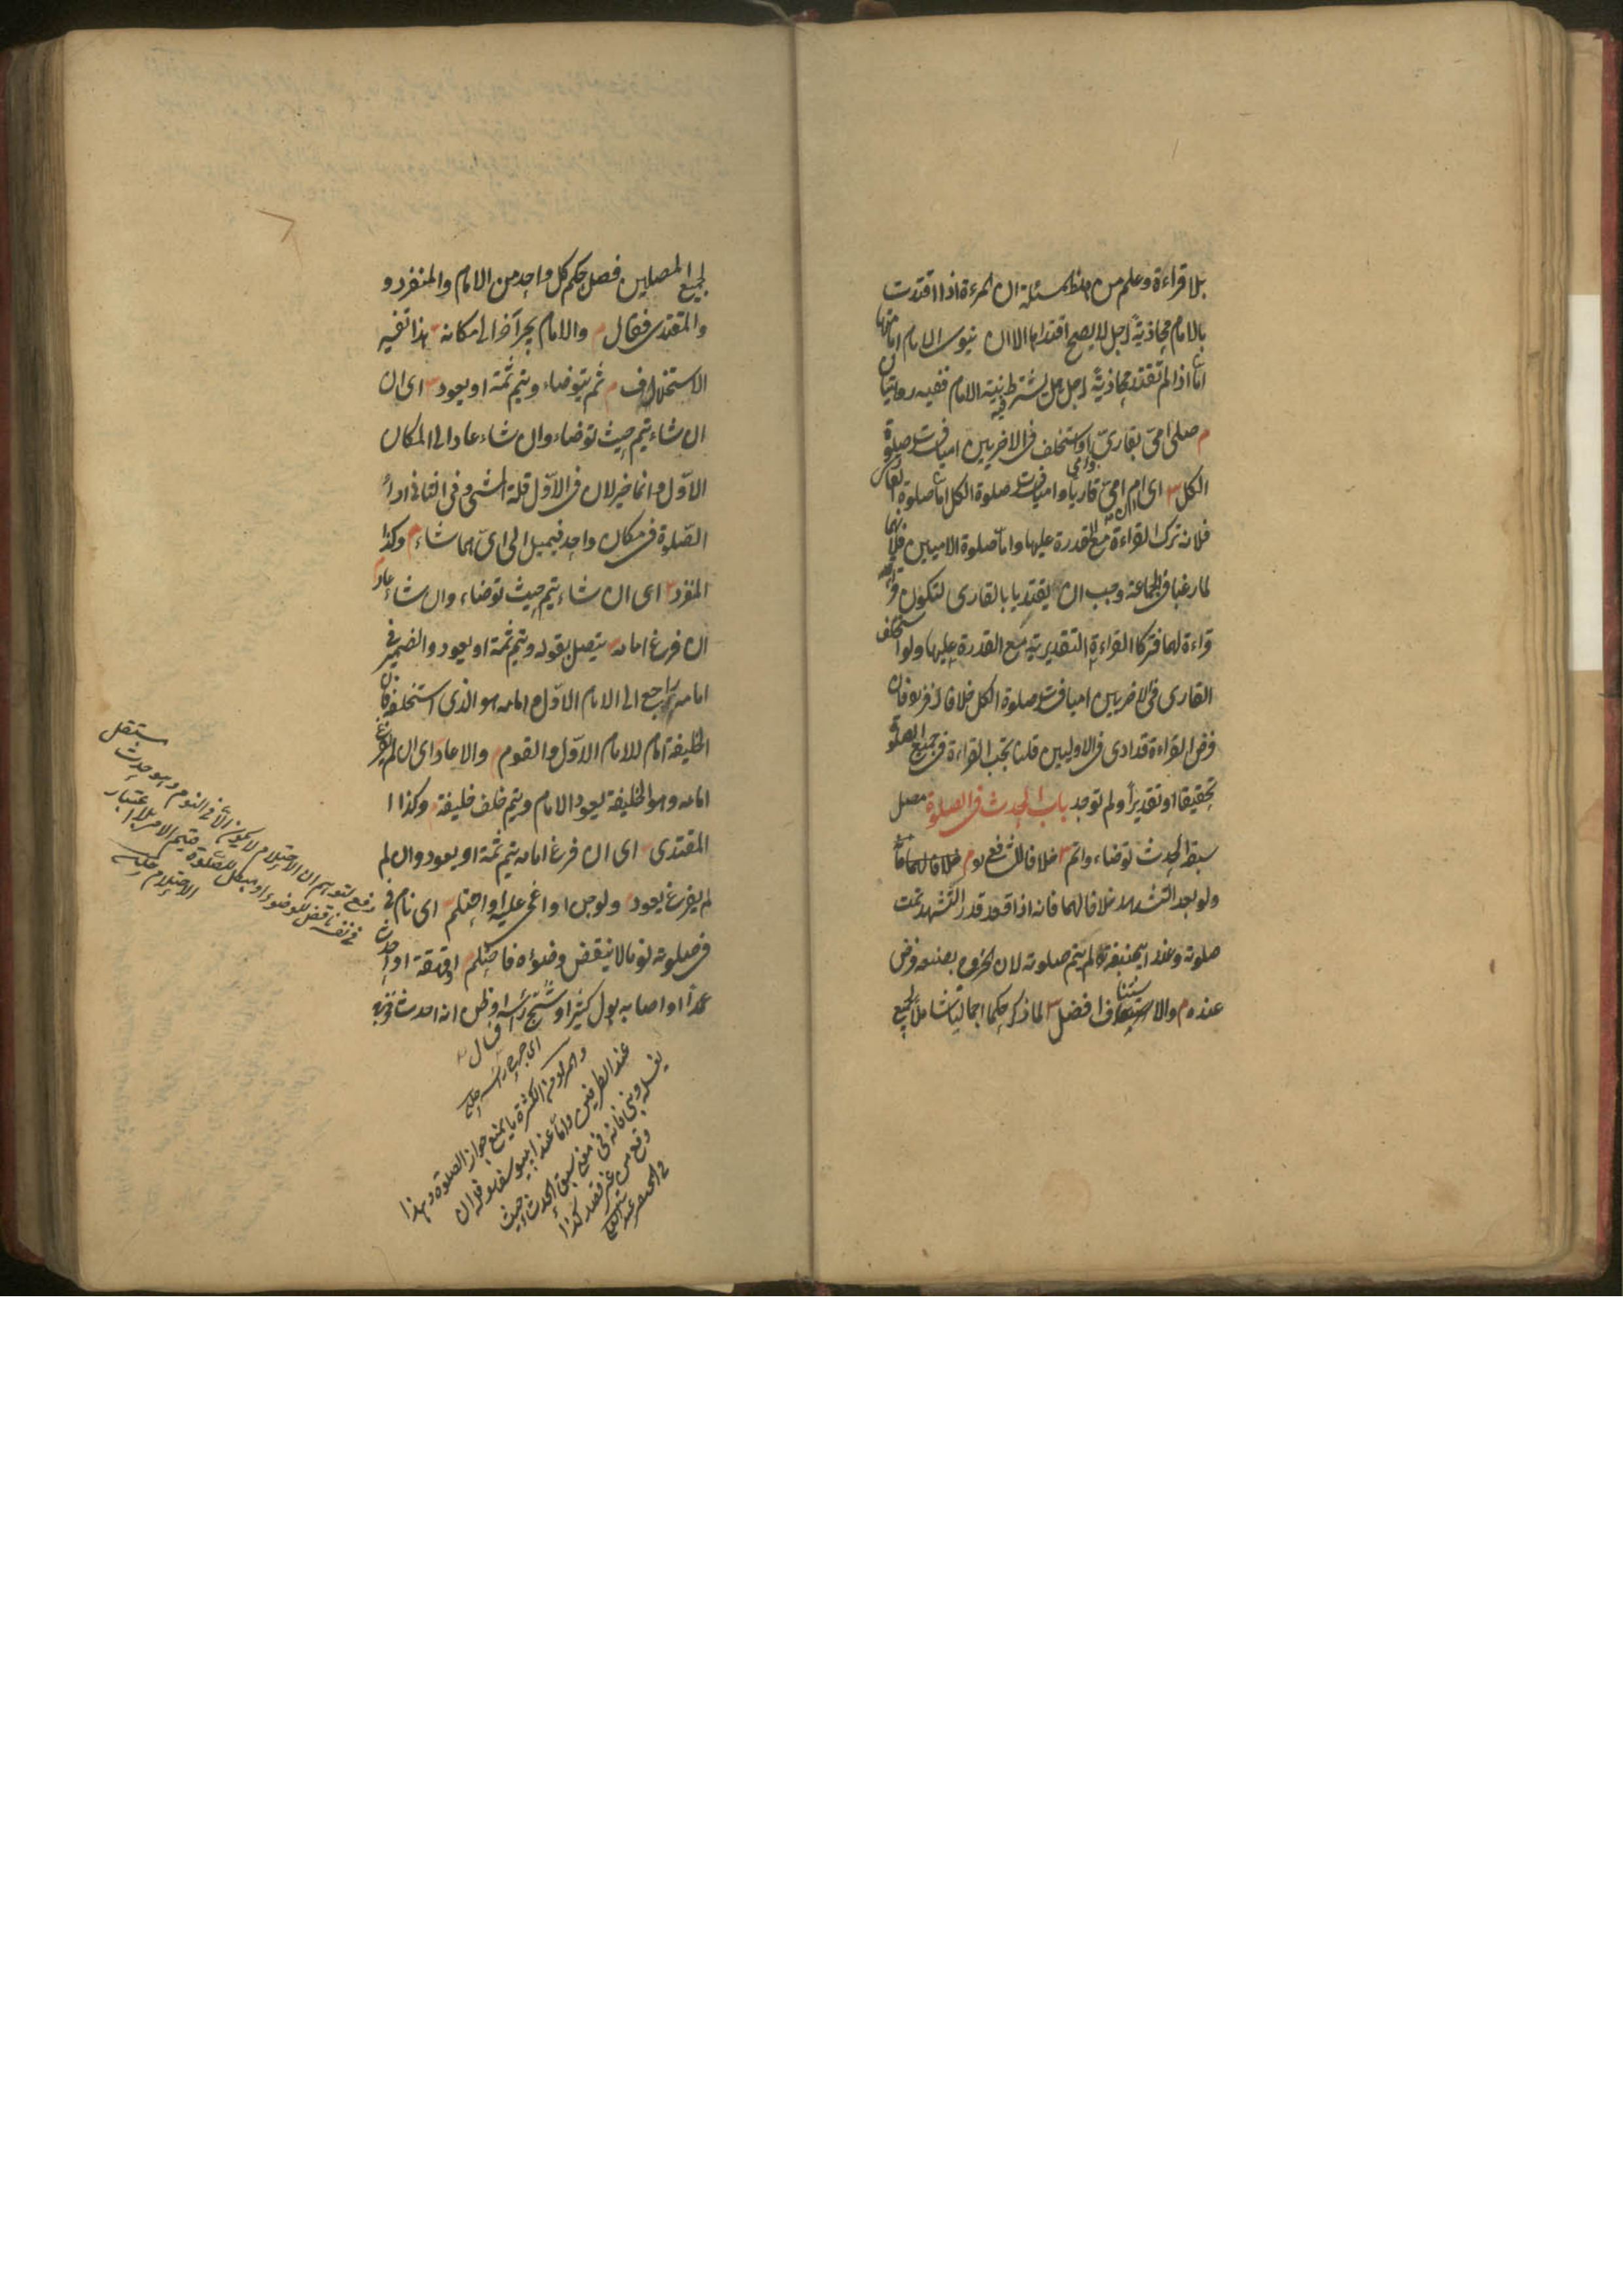 بلا قراءة وعلم من هذه المسئلة ان المرءة اذا اقتدت
بالامام محاذيةً لرجل لا يصح اقتداها الا ان ينوى الامام امامتها
اما اذا لم تقتد محاذيةً لرجل هل يشترط نية الامام ففيه روايتان
م صلى امىّ بقارئ وامى او استخلف فى الاخريين اميا فسدت صلوة
الكل س اى ام امىّ قاريا واميا فسدت صلوة الكل اما صلوة القارى
فلانه ترك القراءة مع القدرة عليها واما صلوة الاميين فلانهما
لما رغبا فى الجماعة وجب ان يقتديا بالقارى لتكون قراءته
قراءة لهما فتركا القراءة التقديرية مع القدرة عليها ولو استخلف
القارى فى الاخريين اميا فسدت صلوة الكل خلافا لزفر فان
فرض القراءة قد ادى فى الاوليين قلنا يجب القراءة فى جميع الصلوة
تحقيقا او تقديراً ولم توجد باب الحدث فى الصلوة مصل
سبقه الحدث توضاء واتم س خلافا للشافعى م
ولو بعد التشهد خلافا لهما فانه اذا قعد قدر التشهد تمت
صلوته وعند ابيحنيفة لم يتم صلوته لان الخروج بصنعه فرض
عنده م والاستيناف افضل س لما ذكر حكما اجماليا شاملاً لجميع
لجميع المصلين فصل حكم كل واحد من الامام والمنفرد و
والمقتدى فقال م والامام يجر آخر الى مكانه س هذا تفسير
الاستخلاف م ثم يتوضاء ويتم ثمة او يعود س اى ان
ان شاء يتم حيث توضاء وان شاء عاد الى المكان
الاول وانما خير لان فى الاول قلة المشى وفى الثانى اداء
الصلوة فى مكان واحد فيميل الى اىّ هما شاء م وكذا
المنفرد س اى ان شاء يتم حيث توضاء وان شاء عاد م
ان فرغ امامه س يتصل بقوله ويتم ثمة او يعود والضمير فى
امامه راجع الى الامام الاول وامامه هو الذى استخلفه فان
الخليفة امام للامام الاول والقوم م والا عاد س اى ان لم يفرغ
امامه وهو الخليفة يعود الامام ويتم خلف خليفة م وكذا ا
المقتدى س اى ان فرغ امامه يتم ثمة او يعود وان لم
لم يفرغ يعود م ولو جن او اغمى عليه او احتلم س اى نام فى
فى صلوته نوما لا ينقض وضوءه فاحتلم م او قهقه او احدث
عمدا او اصابه بول كثير او شج رأسه او ظن انه احدث فخرج
دفع لتوهم ان الاحتلام لا يكون الا فى النوم وهو حدث مستقل
فى نفسه ناقض للوضوء او مبطل للصلوة فتم الامر بلا اعتبار
الاحتلام
والمراد من الكثرة ما يمنع جواز الصلوة وهذا
عند الطرفين واما عند ابييوسف فله ان
يغسله ويبنى فانه فى معنى سبق الحدث حيث
وقع من غير قصد كذا